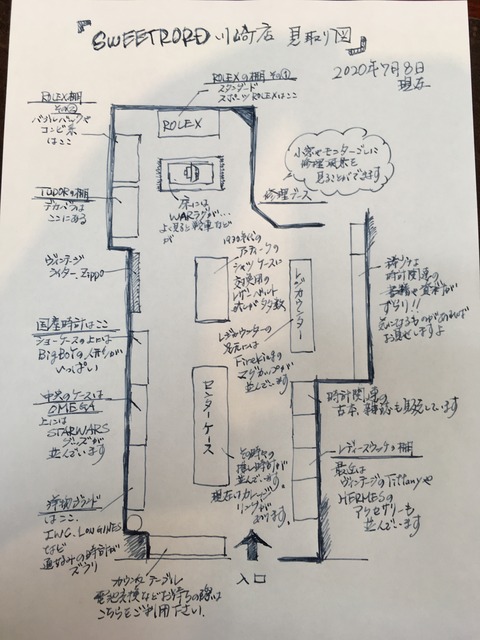 『SWEETRORD 川崎店 見取り図』
2020年7月8日
現在
ROLEXの棚 その①
スタンダード
スポーツROLEXはここ
ROLEX棚
その②
バブルバックや
コンビ系
はここ
ROLEX
小窓やモニターごしに
修理風景を
見ることができます
修理ブース
TUDORの棚
デカバラは
ここにある
床には
WARラグが…
よく見ると戦車などが
ヴィンテージ
ライター、Zippo
1930年代の
アンティークの
シャツケースに
交換用の
レザーベルト
が多数
レジカウンター
時計関連の
書籍や資料が
ずらり!!
気になるものがあれば
お見せしますよ
国産時計はここ
ショーケースの上には
BigBoyの人形が
いっぱい
レジカウンターの
足元には
Firekingの
マグカップが
並んでいます
中央のケースは
OMEGA
上には
STARWARS
グッズが
並んでいます
センターケース
時計関連の
古本、雑誌も販売しています
その時々の
推し時計が
並んでいます。
現在はカレッジ
リングが
あります。
レディースウォッチの棚
最近は
ヴィンテージのTiffanyや
HERMESの
アクセサリーも
並んでいます
はここ。
IWC、LONGINES
など
時計が
ズラリ
入口
カウンターテーブル
電池交換などお待ちの際は
こちらをご利用下さい。